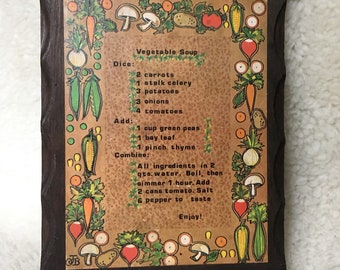 Vegetable Soup
Dice:
2 carrots
1 stalk celery
3 potatoes
3 onions
4 tomatoes
Add:
1 cup green peas
1 bay leaf
1 pinch thyme
Combine:
All ingredients in 2
qts. water. Boil, then
simmer 1 hour. Add
2 cans tomato. Salt
& pepper to taste
Enjoy!
JB